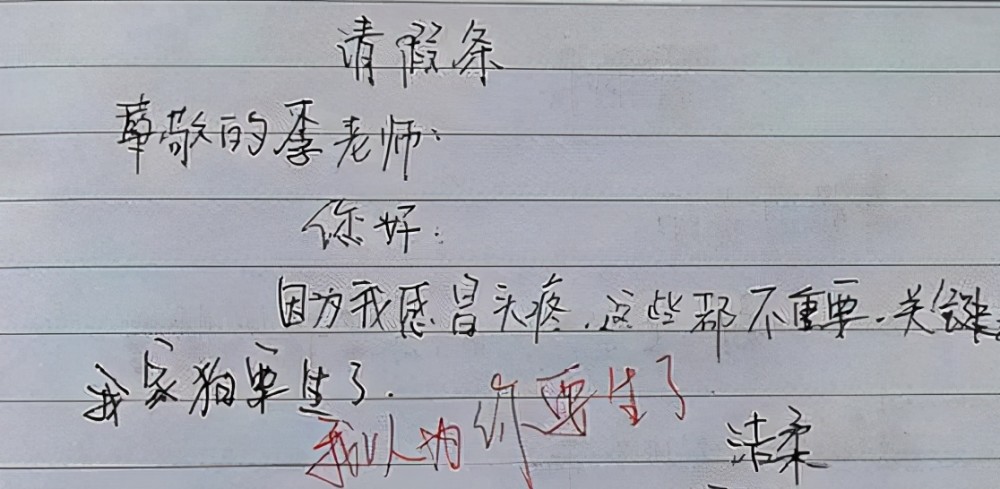 请假条
尊敬的李老师:
您好:
因为我感冒头疼.这些都不重要.关键
我家狗要生了.
我以为你要生了
洁柔